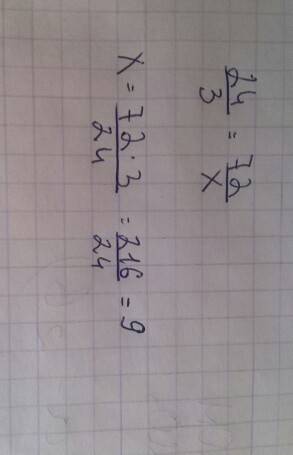 24/3 = 72/x
x = 72·3/24 = 216/24 = 9